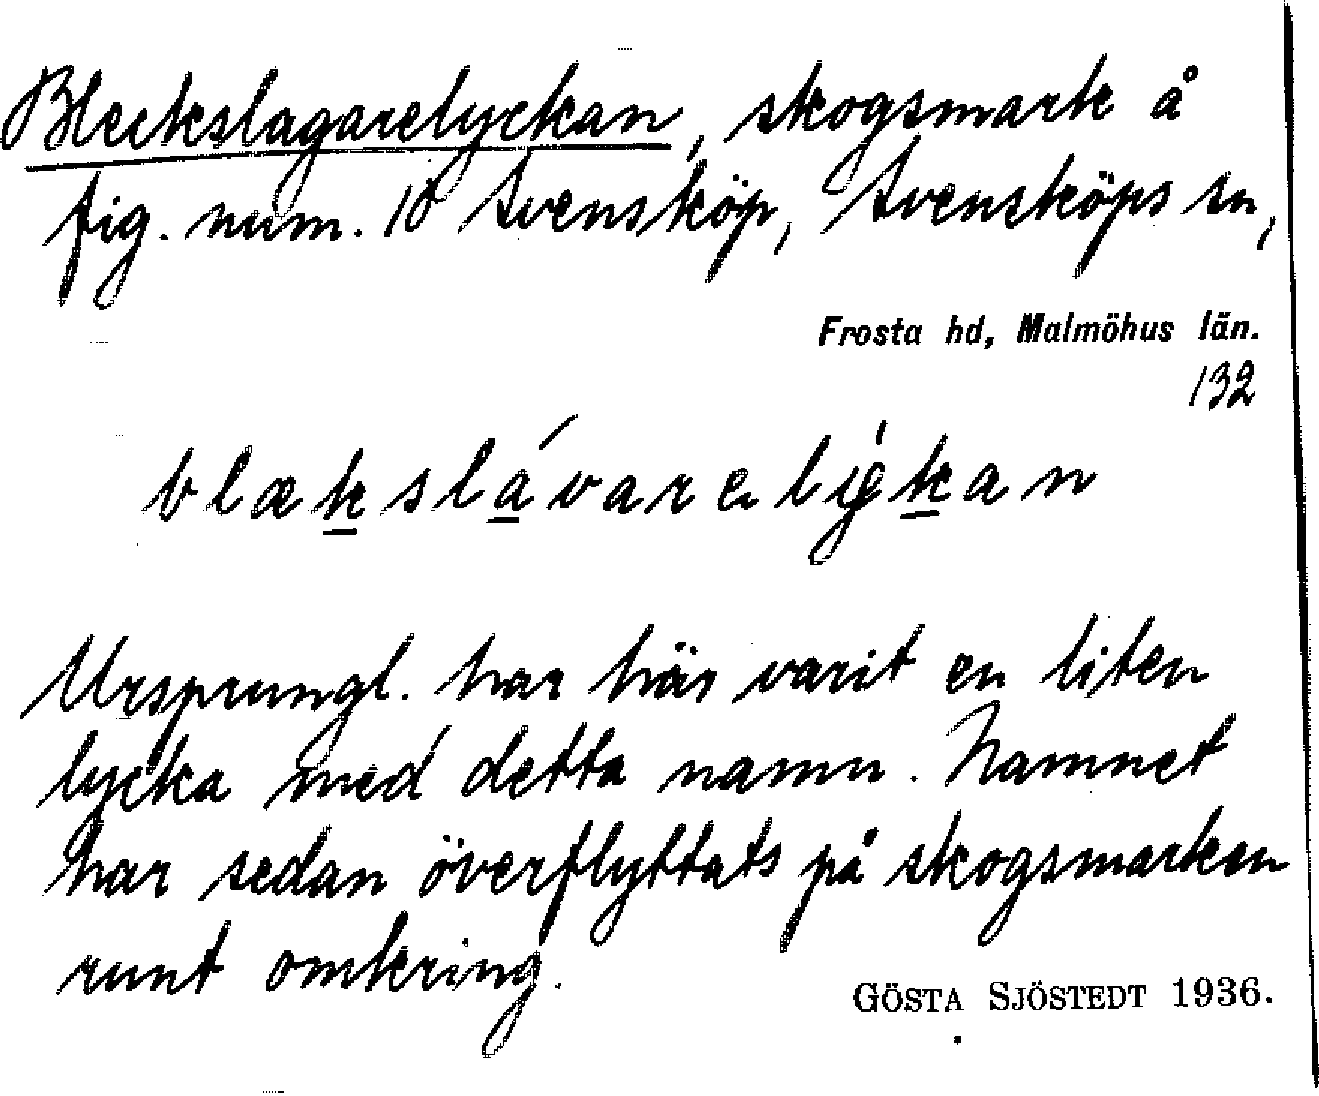 Bleckslagarelyckan, skogsmark å
fig. num. 10 Svensköp, Svensköps sn,
Frosta hd, Malmöhus län.
132
blækslávarelykan
Ursprungl. har här varit en liten
lycka med detta namn. Namnet
har sedan överflyttats på skogsmarken
runt omkring.
GÖSTA SJÖSTEDT 1936.